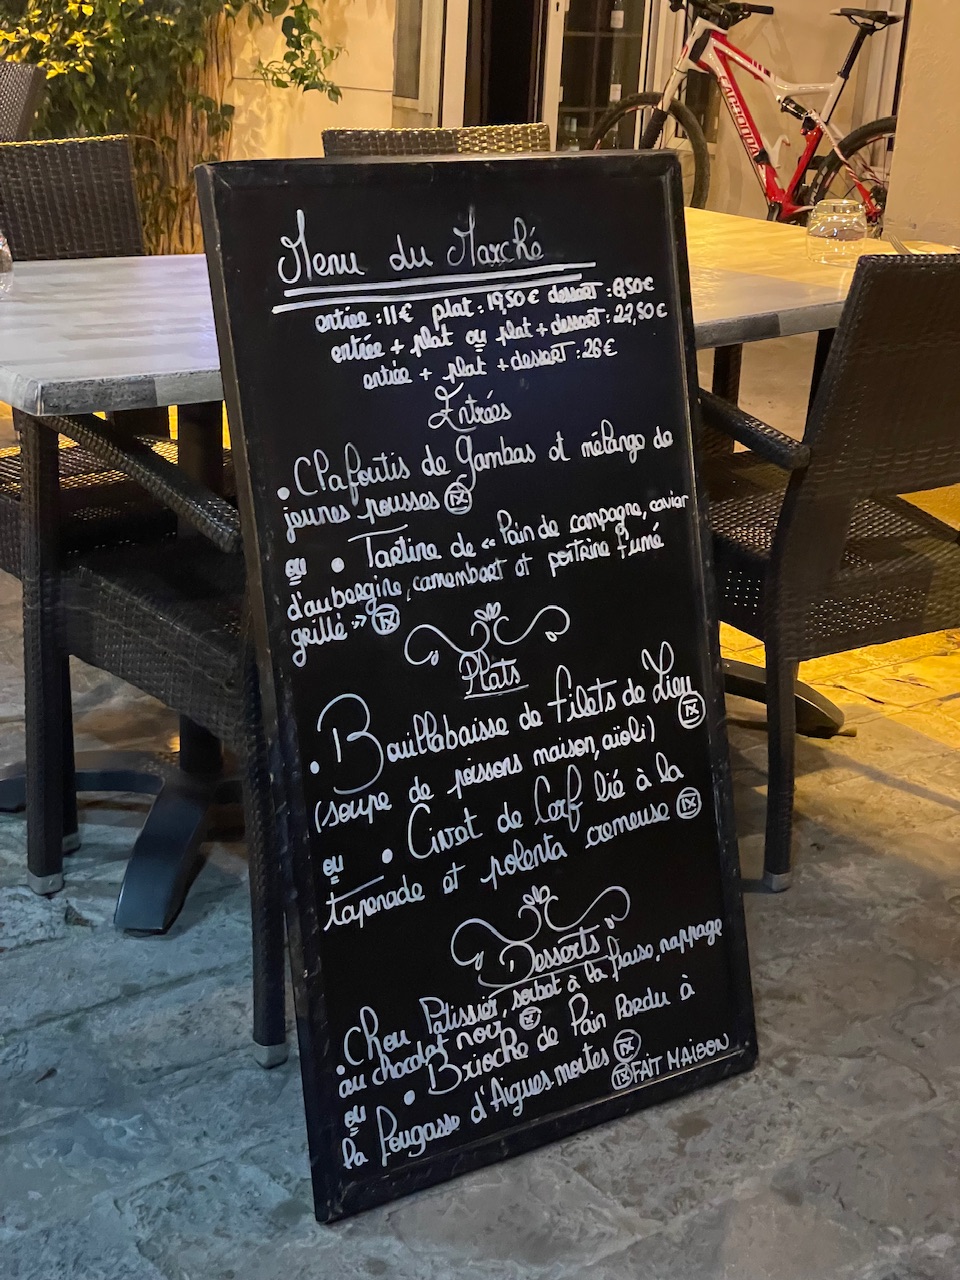 CARBONDA
Menu du Marché
entrée : 11€ plat : 19,50€ dessert : 8,50€
entrée + plat ou plat + dessert : 22,50€
entrée + plat + dessert : 28€
Entrées
• Clafoutis de gambas et mélange de
jeunes pousses
ou • Tartine de « Pain de campagne, caviar
d'aubergine, camembert et poitrine fumé
grillé »
Plats
• Bouillabaisse de filets de Lieu
(soupe de poissons maison, aïoli)
ou • Civet de Cerf lié à la
tapenade et polenta cremeuse
Desserts
• Chou Patissier, sorbet à la fraise, nappage
au chocolat noir
ou • Brioche de Pain Perdu à
la Fougasse d'Aigues mortes
FAIT MAISON